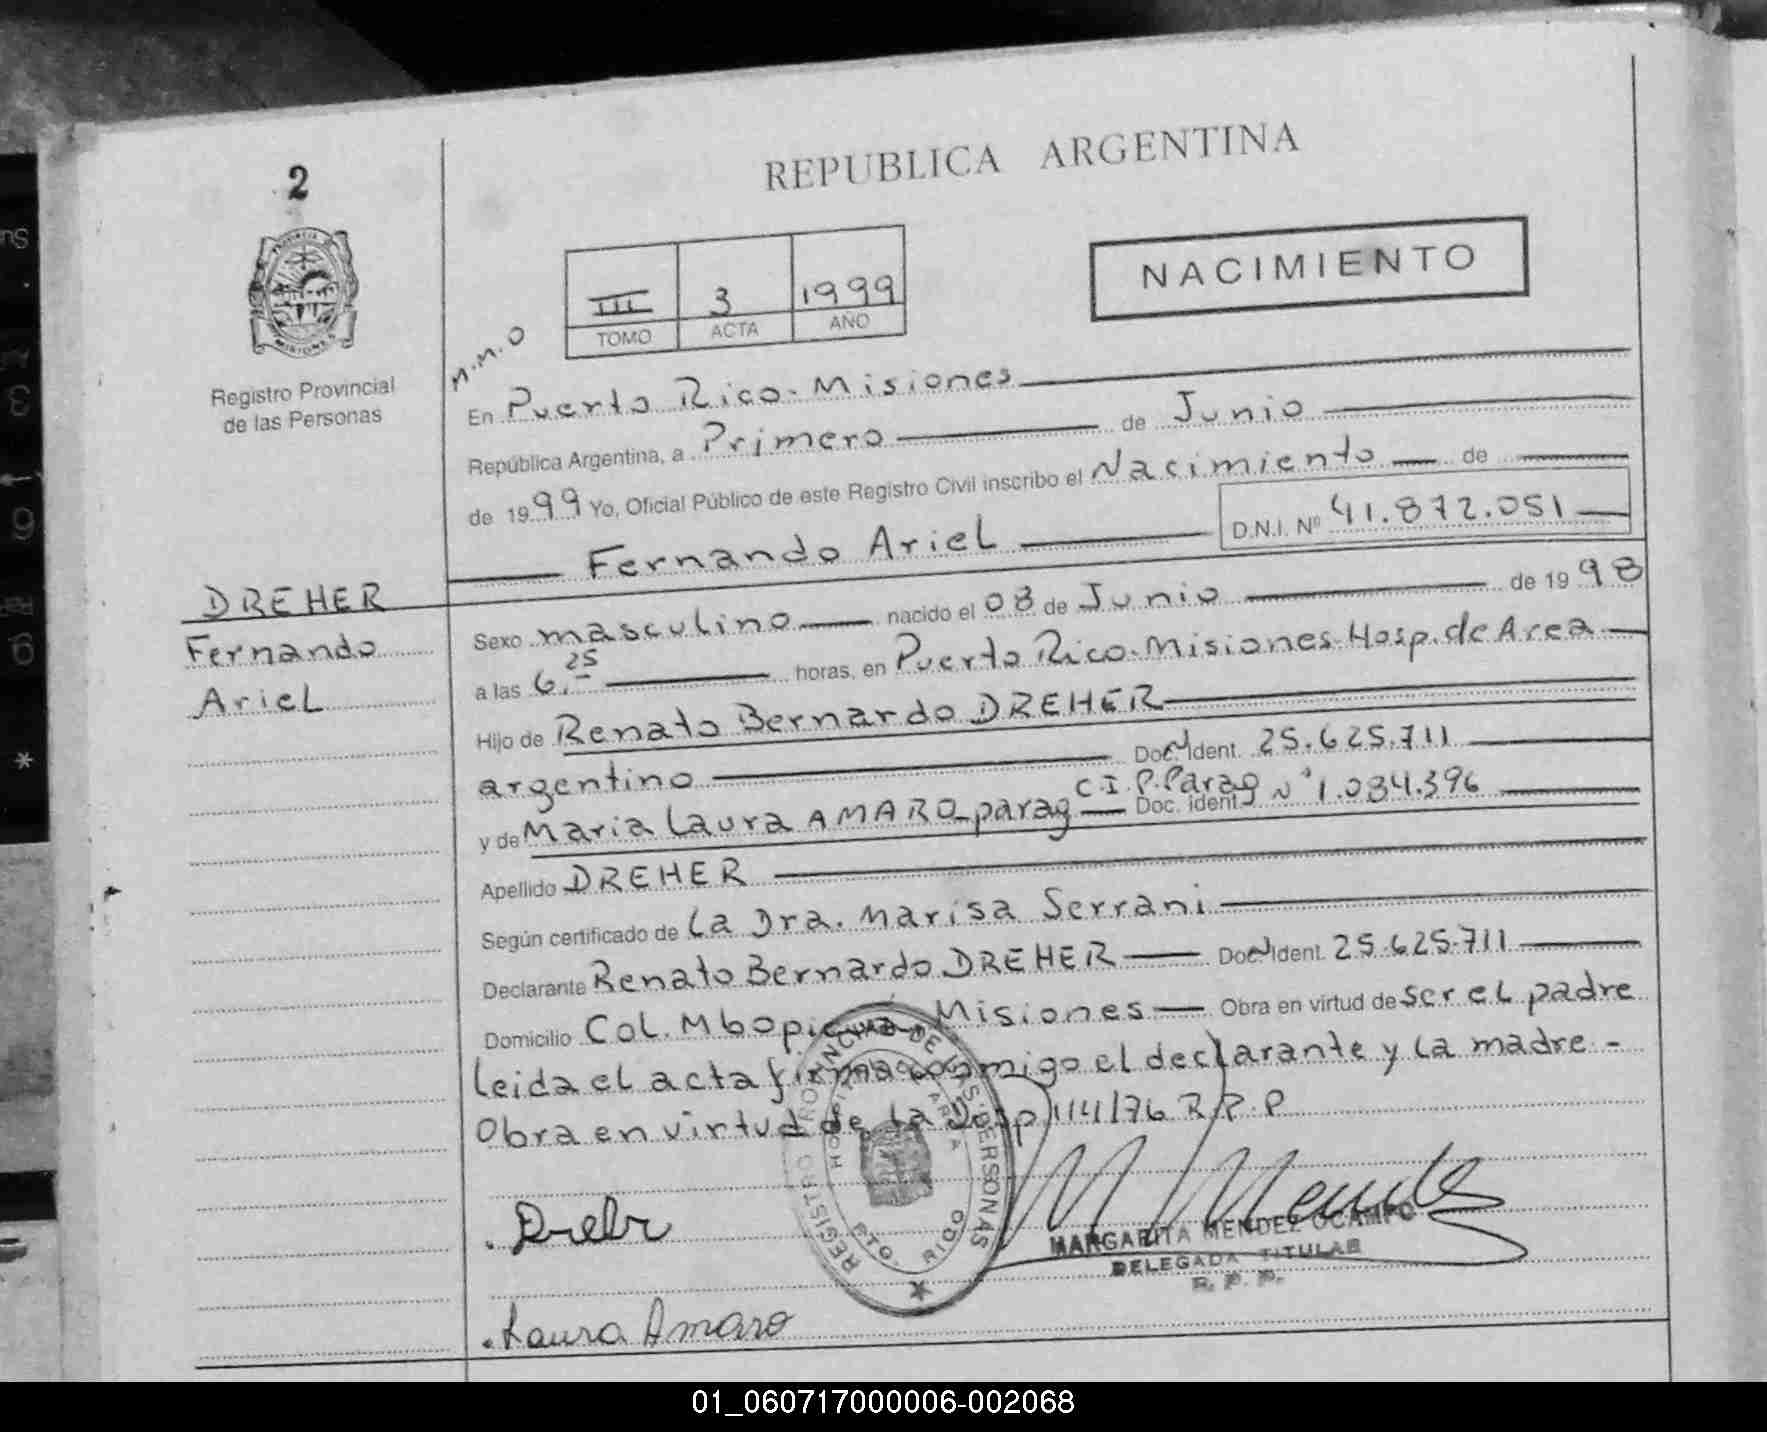 2
REPUBLICA ARGENTINA
PROVINCIA DE
MISIONES
Registro Provincial
de las Personas
III 3 1999
TOMO ACTA AÑO
NACIMIENTO
n.n.o
En Puerto Rico-Misiones
República Argentina, a Primero de Junio
de 1999 Yo, Oficial Público de este Registro Civil inscribo el Nacimiento de
Fernando Ariel D.N.I. Nº 41.872.051
DREHER
Fernando
Ariel
Sexo masculino nacido el 08 de Junio de 1998
a las 6,25 horas, en Puerto Rico-Misiones-Hosp. de Area
Hijo de Renato Bernardo DREHER
argentino Doc. Ident. 25.625.711
y de Maria Laura AMARO-parag C.I.P.Parag Doc. Ident. Nº 1.034.396
Apellido DREHER
Según certificado de La Dra. Marisa Serrani
Declarante Renato Bernardo DREHER Doc. Ident. 25.625.711
Domicilio Col. Mbopicua, Misiones Obra en virtud de ser el padre
leida el acta firma conmigo el declarante y la madre -
Obra en virtud de la Disp 114/76 R.P.P
REGISTRO PROVINCIAL DE LAS PERSONAS
HOSPITAL AREA
PTO. RICO
Dreher
M Mendez
MARGARITA MENDEZ OCAMPO
DELEGADA TITULAR
R. P. P.
Laura Amaro
01_060717000006-002068